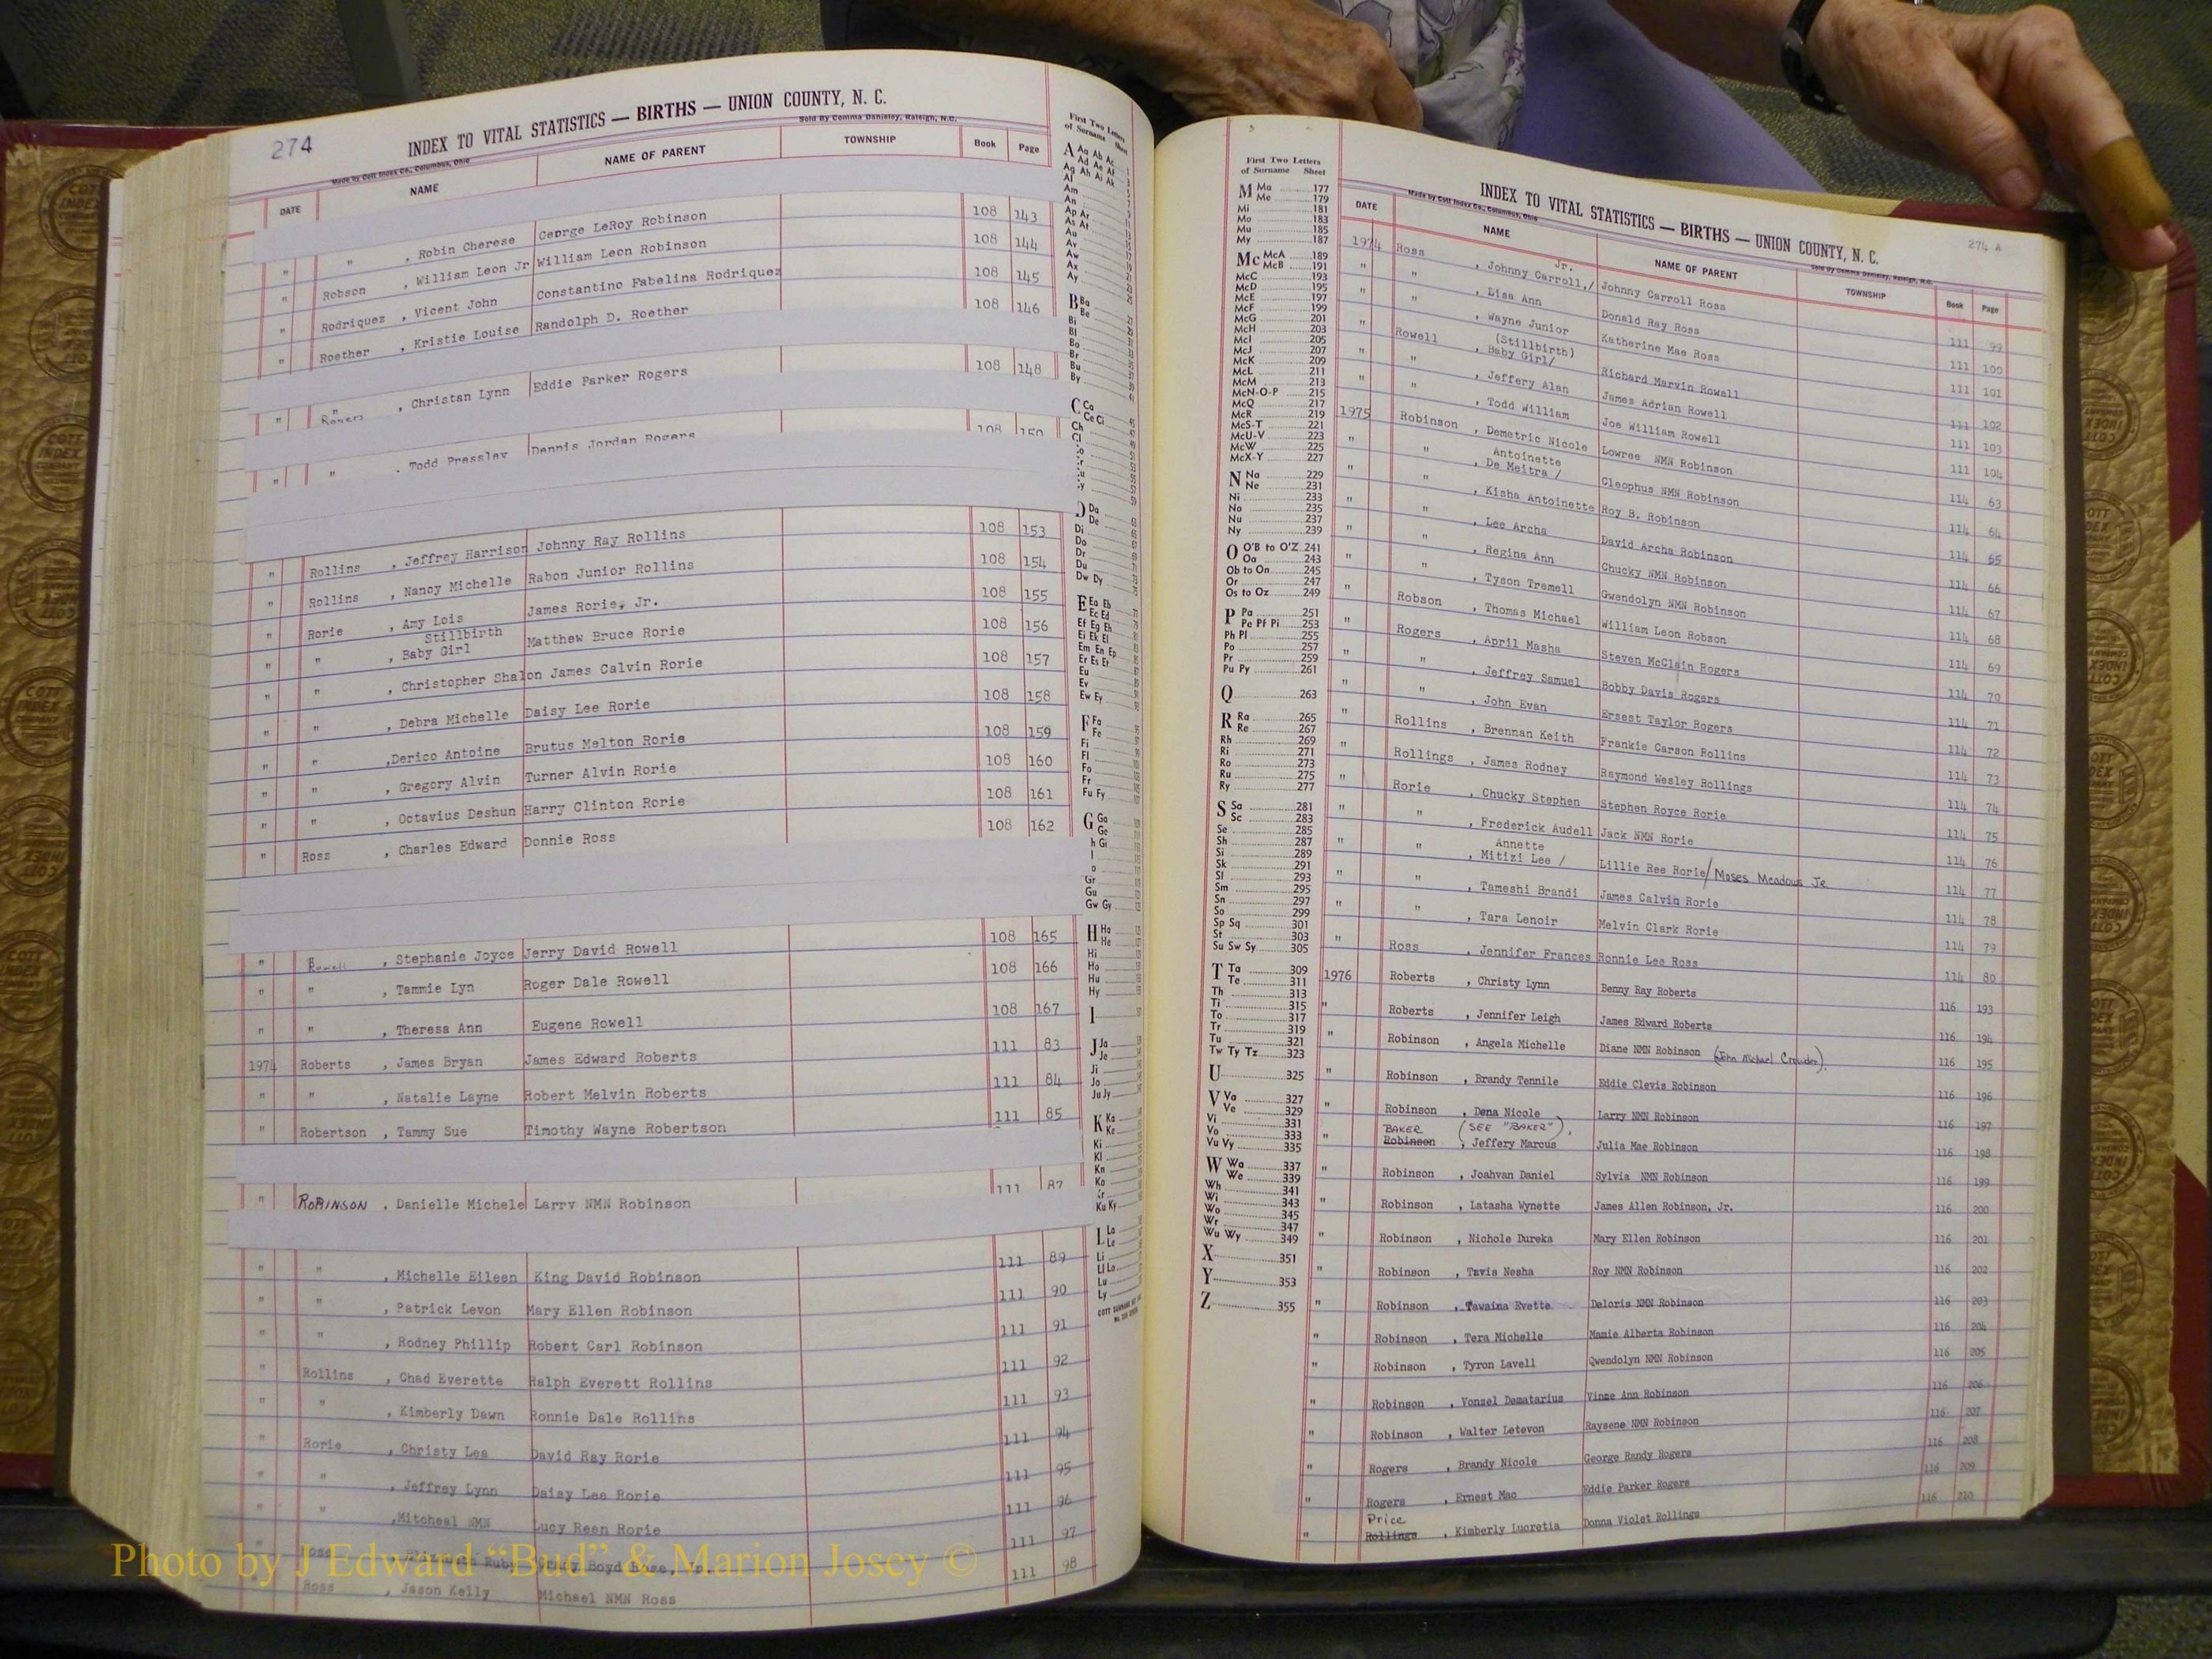 274
INDEX TO VITAL STATISTICS — BIRTHS — UNION COUNTY, N. C.
Made by Cott Index Co., Columbus, Ohio Sold By Comma Danieley, Raleigh, N.C.
DATE NAME NAME OF PARENT TOWNSHIP Book Page
" " , Robin Cherese George LeRoy Robinson 108 143
" Robson , William Leon Jr William Leon Robinson 108 144
" Rodriquez , Vicent John Constantino Fabelina Rodriquez 108 145
" Roether , Kristie Louise Randolph D. Roether 108 146
" " Rogers , Christan Lynn Eddie Parker Rogers 108 148
" " , Todd Pressley Dennis Jordan Rogers 108 150
" Rollins , Jeffrey Harrison Johnny Ray Rollins 108 153
" Rollins , Nancy Michelle Rabon Junior Rollins 108 154
" Rorie , Amy Lois James Rorie, Jr. 108 155
" " , Baby Girl Stillbirth Matthew Bruce Rorie 108 156
" " , Christopher Shalon James Calvin Rorie 108 157
" " , Debra Michelle Daisy Lee Rorie 108 158
" " ,Derico Antoine Brutus Melton Rorie 108 159
" " , Gregory Alvin Turner Alvin Rorie 108 160
" " , Octavius Deshun Harry Clinton Rorie 108 161
" Ross , Charles Edward Donnie Ross 108 162
" " Rowell , Stephanie Joyce Jerry David Rowell 108 165
" " , Tammie Lyn Roger Dale Rowell 108 166
" " , Theresa Ann Eugene Rowell 108 167
1974 Roberts , James Bryan James Edward Roberts 111 83
" " , Natalie Layne Robert Melvin Roberts 111 84
" Robertson , Tammy Sue Timothy Wayne Robertson 111 85
" ROBINSON , Danielle Michele Larry NMN Robinson 111 87
" " , Michelle Eileen King David Robinson 111 89
" " , Patrick Levon Mary Ellen Robinson 111 90
" " , Rodney Phillip Robert Carl Robinson 111 91
" Rollins , Chad Everette Ralph Everett Rollins 111 92
" " , Kimberly Dawn Ronnie Dale Rollins 111 93
" Rorie , Christy Lea David Ray Rorie 111 94
" " , Jeffrey Lynn Daisy Lee Rorie 111 95
" " ,Mitcheal NMN Lucy Reen Rorie 111 96
" Ruby Boyd 111 97
Ross , Jason Kelly Michael NMN Ross 111 98
First Two Letters of Surname Sheet
A Aa Ab Ac
Ad Ae Af
Ag Ah Ai Ak
Al
Am
An
Ap Ar
As At
Au
Av
Aw
Ax
Ay
B Ba
Be
Bi
Bl
Bo
Br
Bu
By
C Ca
Ce Ci
Ch
Cl
D Da
De
Di
Do
Dr
Du
Dw Dy
E Ea Eb
Ec Ed
Ef Eg Eh
Ei Ek El
Em En Ep
Er Es Et
Eu
Ev
Ew Ey
F Fa
Fe
Fi
Fl
Fo
Fr
Fu Fy
G Ga
Ge
Gr
Gu
Gw Gy
H Ha
He
Hi
Ho
Hu
Hy
I
J Ja
Je
Ji
Jo
Ju Jy
K Ka
Ke
Ki
Kl
Kn
Ko
Ku Ky
L La
Le
Li
Ll Lo
Lu
Ly
First Two Letters of Surname Sheet
M Ma 177
Me 179
Mi 181
Mo 183
Mu 185
My 187
Mc McA 189
McB 191
McC 193
McD 195
McE 197
McF 199
McG 201
McH 203
McI 205
McJ 207
McK 209
McL 211
McM 213
McN-O-P 215
McQ 217
McR 219
McS-T 221
McU-V 223
McW 225
McX-Y 227
N Na 229
Ne 231
Ni 233
No 235
Nu 237
Ny 239
O O'B to O'Z 241
Oa 243
Ob to On 245
Or 247
Os to Oz 249
P Pa 251
Pe Pf Pi 253
Ph Pl 255
Po 257
Pr 259
Pu Py 261
Q 263
R Ra 265
Re 267
Rh 269
Ri 271
Ro 273
Ru 275
Ry 277
S Sa 281
Sc 283
Se 285
Sh 287
Si 289
Sk 291
Sl 293
Sm 295
Sn 297
So 299
Sp Sq 301
St 303
Su Sw Sy 305
T Ta 309
Te 311
Th 313
Ti 315
To 317
Tr 319
Tu 321
Tw Ty Tz 323
U 325
V Va 327
Ve 329
Vi 331
Vo 333
Vu Vy 335
W Wa 337
We 339
Wh 341
Wi 343
Wo 345
Wr 347
Wu Wy 349
X 351
Y 353
Z 355
274 A
INDEX TO VITAL STATISTICS — BIRTHS — UNION COUNTY, N. C.
Made by Cott Index Co., Columbus, Ohio Sold By Comma Danieley, Raleigh, N.C.
DATE NAME NAME OF PARENT TOWNSHIP Book Page
1974 Ross , Johnny Carroll,/ Jr. Johnny Carroll Ross 111 99
" " , Lisa Ann Donald Ray Ross 111 100
" " , Wayne Junior Katherine Mae Ross 111 101
" Rowell , Baby Girl/ (Stillbirth) Richard Marvin Rowell 111 102
" " , Jeffery Alan James Adrian Rowell 111 103
" " , Todd William Joe William Rowell 111 104
1975 Robinson , Demetric Nicole Lowree NMN Robinson 114 63
" " , De Meitra / Antoinette Cleophus NMN Robinson 114 64
" " , Kisha Antoinette Roy B. Robinson 114 65
" " , Lee Archa David Archa Robinson 114 66
" " , Regina Ann Chucky NMN Robinson 114 67
" " , Tyson Tremell Gwendolyn NMN Robinson 114 68
" Robson , Thomas Michael William Leon Robson 114 69
" Rogers , April Masha Steven McClain Rogers 114 70
" " , Jeffrey Samuel Bobby Davis Rogers 114 71
" " , John Evan Ernest Taylor Rogers 114 72
" Rollins , Brennan Keith Frankie Carson Rollins 114 73
" Rollings , James Rodney Raymond Wesley Rollings 114 74
" Rorie , Chucky Stephen Stephen Royce Rorie 114 75
" " , Frederick Audell Jack NMN Rorie 114 76
" " , Mitizi Lee / Annette Lillie Ree Rorie/ Moses Meadows Jr 114 77
" " , Tameshi Brandi James Calvin Rorie 114 78
" " , Tara Lenoir Melvin Clark Rorie 114 79
" Ross , Jennifer Frances Ronnie Lee Ross 114 80
1976 Roberts , Christy Lynn Benny Ray Roberts 116 193
" Roberts , Jennifer Leigh James Edward Roberts 116 194
" Robinson , Angela Michelle Diane NMN Robinson (John Michael Crowder) 116 195
" Robinson , Brandy Tennile Eddie Clevis Robinson 116 196
" Robinson , Dena Nicole Larry NMN Robinson 116 197
" BAKER Robinson (SEE "BAKER"), , Jeffery Marcus Julia Mae Robinson 116 198
" Robinson , Joahvan Daniel Sylvia NMN Robinson 116 199
" Robinson , Latasha Wynette James Allen Robinson, Jr. 116 200
" Robinson , Nichole Dureka Mary Ellen Robinson 116 201
" Robinson , Tavis Nesha Roy NMN Robinson 116 202
" Robinson , Tawaina Evette Deloris NMN Robinson 116 203
" Robinson , Tera Michelle Mamie Alberta Robinson 116 204
" Robinson , Tyron Lavell Qwendolyn NMN Robinson 116 205
" Robinson , Vonzel Dematarius Vinne Ann Robinson 116 206
" Robinson , Walter Letevon Raysene NMN Robinson 116 207
" Rogers , Brandy Nicole George Randy Rogers 116 208
" Rogers , Ernest Mac Eddie Parker Rogers 116 209
" Price Rollings , Kimberly Lucretia Donna Violet Rollings 116 210
Photo by J Edward “Bud” & Marion Josey ©